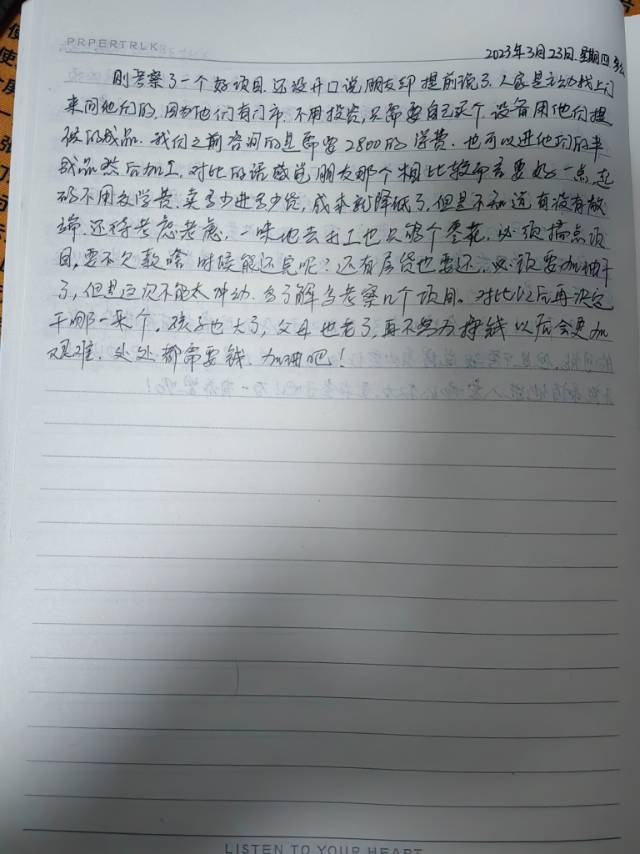 PRPERTRLK
2023年3月23日 星期四
刚考察了一个好项目,还没开口说朋友却提前说了,人家是主动找上门
来问他们的,因为他们有门市,不用投资,只需要自己买个设备用他们提
供的成品。我们之前咨询的是需要2800的学费,也可以进他们的半
成品然后加工,对比的话感觉朋友那个相比较而言要好一点,起
码不用交学费,卖多少进多少货,成本就降低了,但是不知道有没有敝
端,还待考虑考虑,一味地去打工也只够个零花,必须搞点项
目,要不欠款啥时候能还完呢?还有房贷也要还,必须要加油干
了,但是这次不能太冲动,多了解多考察几个项目。对比以后再决定
干哪一个,孩子也大了,父母也老了,再不努力挣钱以后会更加
艰难,处处都需要钱,加油吧!
LISTEN TO YOUR HEART